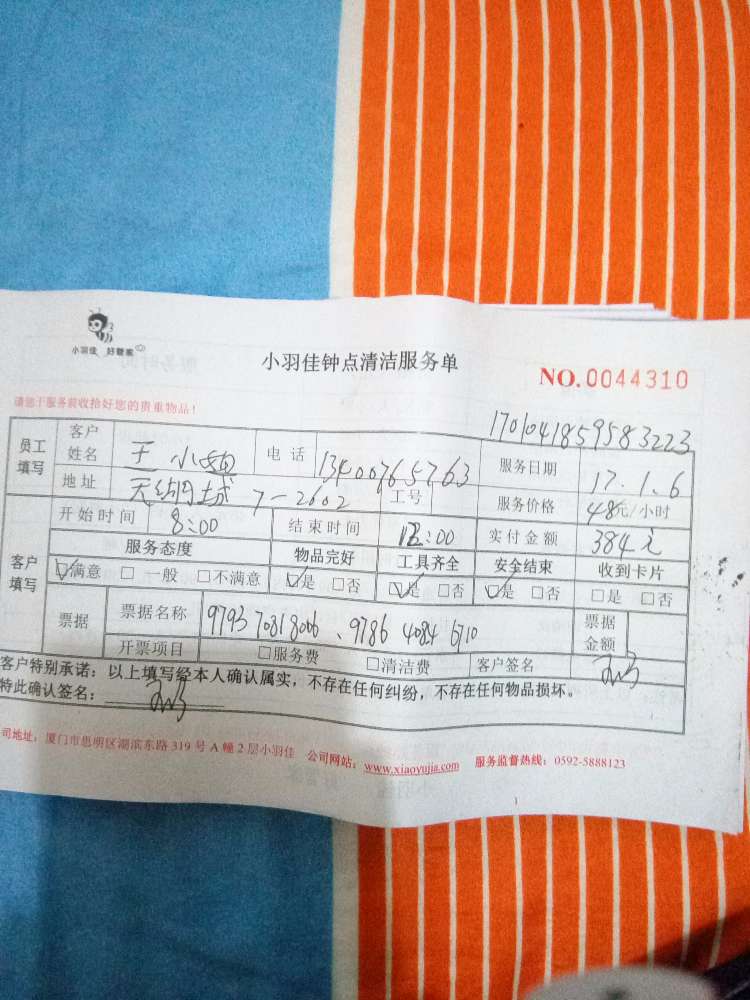 小羽佳 好管家
小羽佳钟点清洁服务单
NO.0044310
请您于服务前收拾好您的贵重物品!
1701041859583223
员工填写 客户姓名 王小姐 电话 13400765763 服务日期 17.1.6
地址 天湖城 7-2602 工号 服务价格 48元/小时
客户填写 开始时间 8:00 结束时间 12:00 实付金额 384元
服务态度 物品完好 工具齐全 安全结束 收到卡片
☑满意 □一般 □不满意 ☑是 □否 ☑是 □否 ☑是 □否 □是 □否
票据 票据名称 9793 7081 8006、9786 4084 6710 票据金额
开票项目 □服务费 □清洁费 客户签名
客户特别承诺:以上填写经本人确认属实,不存在任何纠纷,不存在任何物品损坏。
特此确认签名:
司地址:厦门市思明区湖滨东路319号A幢2层小羽佳 公司网站:www.xiaoyujia.com 服务监督热线:0592-5888123